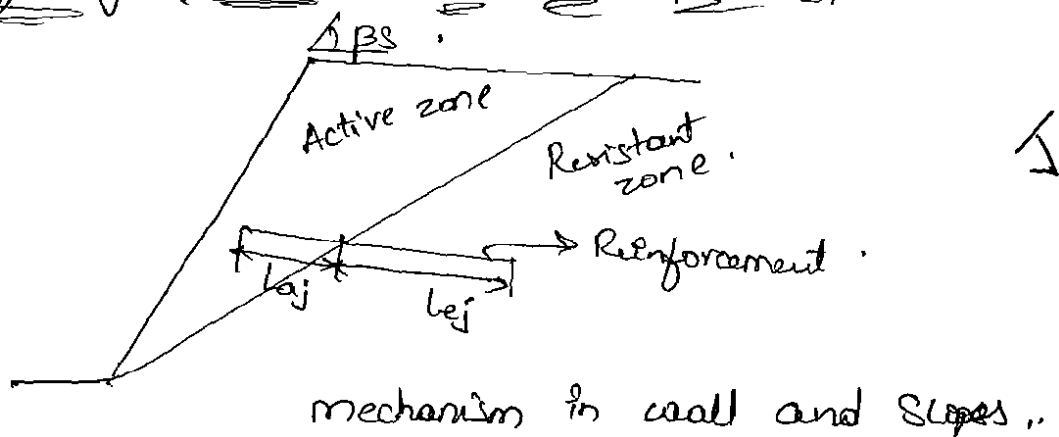 βs .
Active zone
Resistant
zone .
Reinforcement .
Laj
Lej
mechanism in wall and Slopes ..